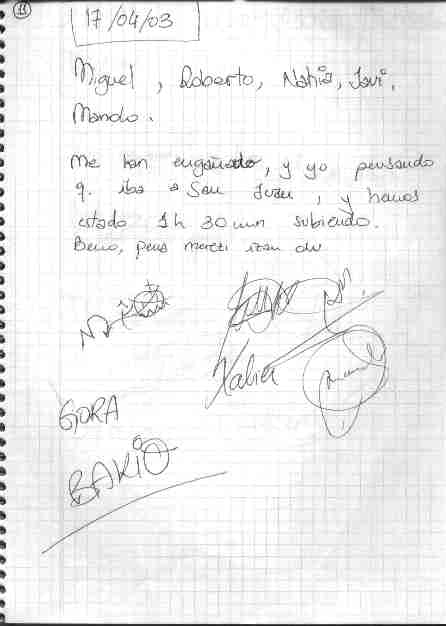 11
17/04/03
Miguel, Roberto, Nahia, Javi,
Mando.
Me han engañado, y yo pensando
q. iba a San Juan, y hemos
estado 1h 30 mn subiendo.
Beno, pena merezi izan du
Xabier
GORA
BAKIO